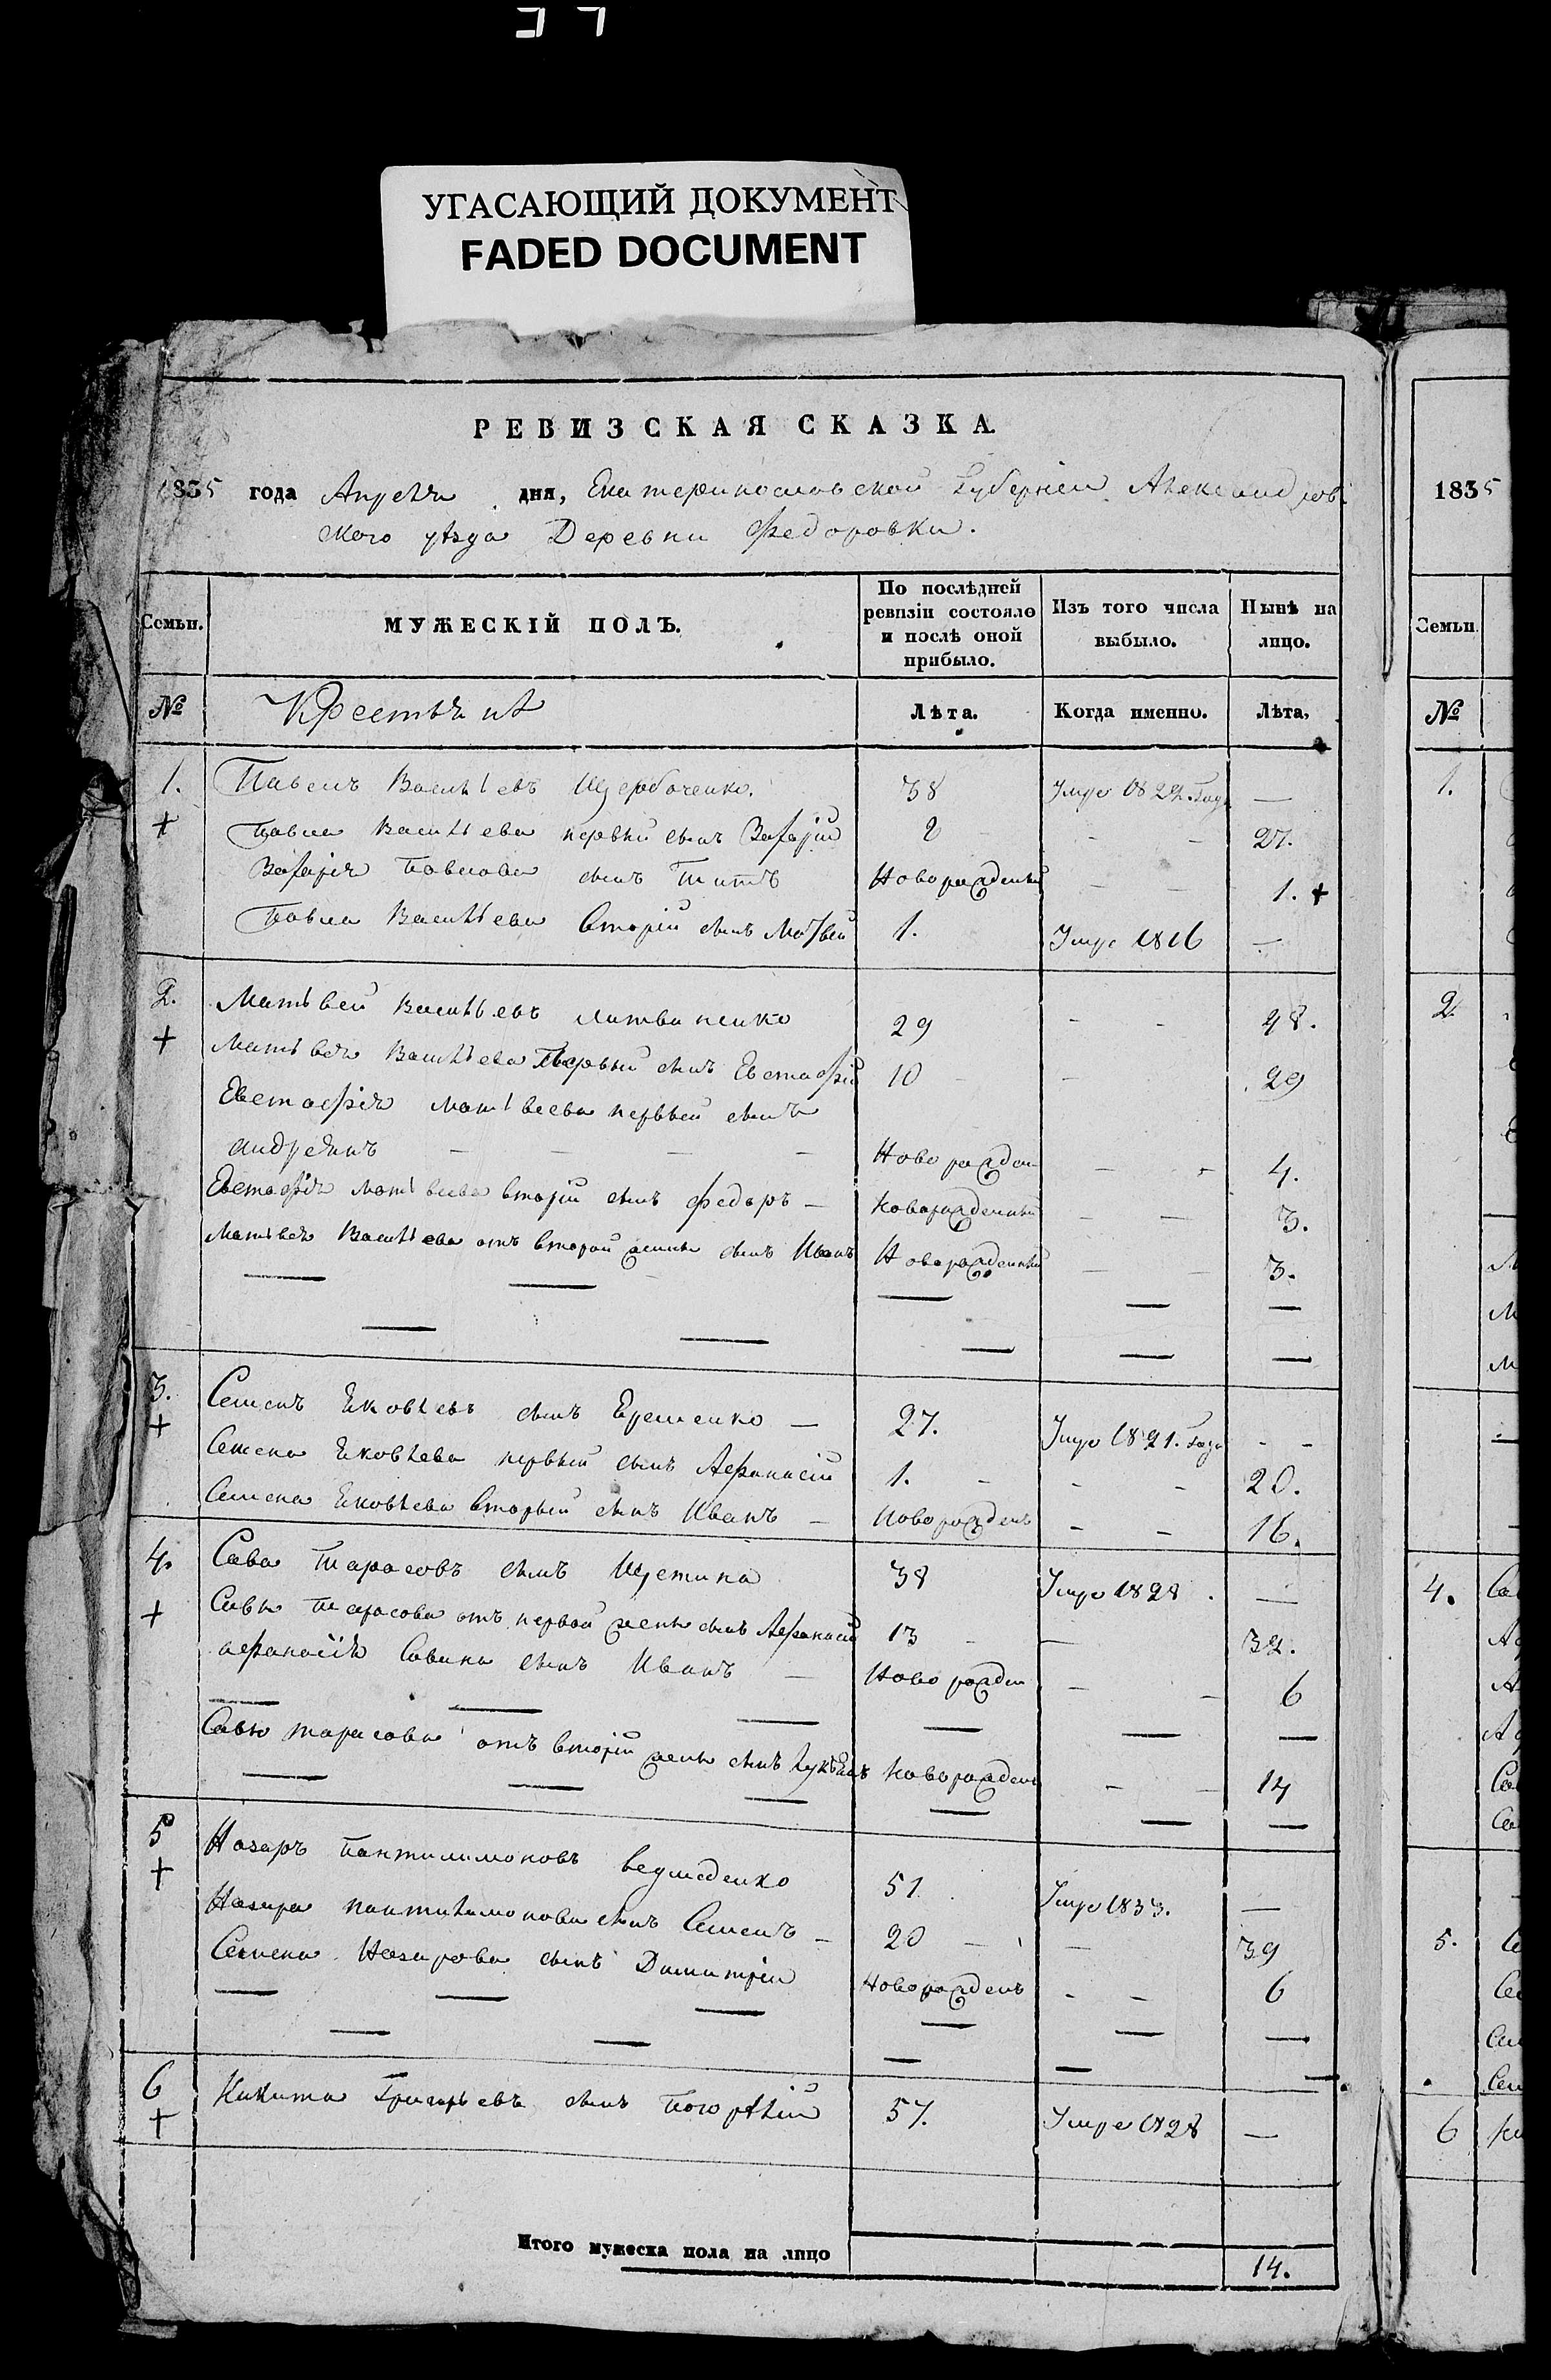 УГАСАЮЩИЙ ДОКУМЕНТ
FADED DOCUMENT
РЕВИЗСКАЯ СКАЗКА.
1835 года Апреля дня, Екатеринославской Губернии Александров
ского уѣзда Деревни Федоровки.
Семьи. МУЖЕСКІЙ ПОЛЪ. По послѣдней ревизіи состояло и послѣ оной прибыло. Изъ того числа выбыло. Нынѣ на лицо.
№ Крестьянѣ Лѣта. Когда именно. Лѣта,
1. Павелъ Васильевъ Щербоченко. 38 Умре 1822. Года —
+ Павла Васильева первый сынъ 2 - - 27.
Павлова сынъ Титъ Новорожденный - - 1. +
Павла Васильева вторій сынъ Матвей 1. Умре 1816 —
2. Матьвей Васильевъ Литвиненко 29 - - 48.
+ Матьвея Васильева Первый сынъ Евстафій 10 - - 29
Евстафія Матьвеева первый сынъ
андреянъ — — — — Ново рожден - - 4.
Евстафія Матьвеева вторій сынъ федоръ — Новорожденный - - 3.
Матьвея Васильева отъ второй жены сынъ Иванъ Новорожденный - - 3.
3. Семенъ Яковлевъ сынъ Еременко — 27. Умре 1821. Года - -
+ Семена Яковлева первый сынъ Афанасій 1. - - - 20.
Семена Яковлева вторый сынъ Иванъ — Новорожденъ - - 16.
4. Сава Тарасовъ сынъ Щетина 38 Умре 1828. —
+ Савы Тарасова отъ первой жены сынъ Афанасій 13 - — 32.
афанасія Савина сынъ Иванъ — Ново рожден - - 6
Савы тарасова отъ вторій жены сынъ Новорожденъ - - 14
5 Назаръ Пантилимоновъ 51. Умре 1833. —
+ Назара пантилимонова сынъ Семенъ — 20 — — 39
Семена Назарова сынъ Димитрій Новорожденъ - - 6
6 Никита Григорьевъ сынъ Погорѣлій 57. Умре 1828 —
+
Итого мужеска пола на лицо 14.
1835
Семьи
№
1.
2
4. Са
5.
6 Ни